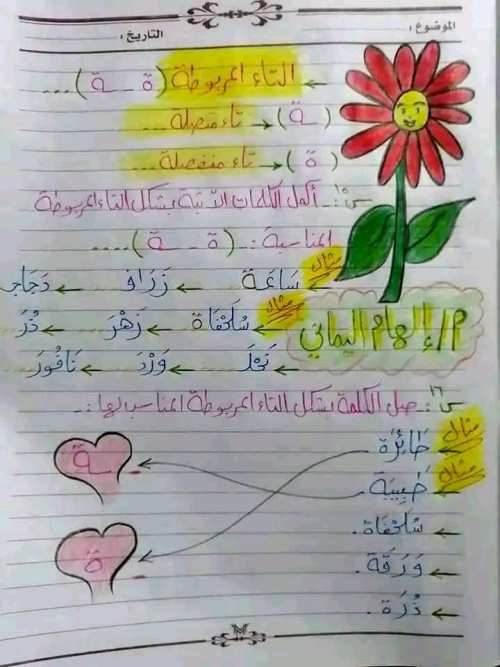 الموضوع: التاريخ:
← التاء المربوطة (ة ـة) ...
(ـة) ← تاء متصلة ...
(ة) ← تاء منفصلة ...
س١: أكمل الكلمات الآتية بشكل التاء المربوطة
المناسبة:- (ة ـة) ....
مثال ← سَاعَة ← زَرَافـ ← دَجَاجـ
مثال ← سُلَحْفَاة ← زَهْرَ ← ذُرَ
← نَحْلَـ ← وَرْدَ ← نَافُورَ
م/إلهام اليماني
س٢: صل الكلمة بشكل التاء المربوطة المناسب لها:-
مثال ← طَائِرَة
مثال ← طَبِيبَة
← سُلَحْفَاة.
← وَرَقَة.
← ذُرَة.
ـة
ة